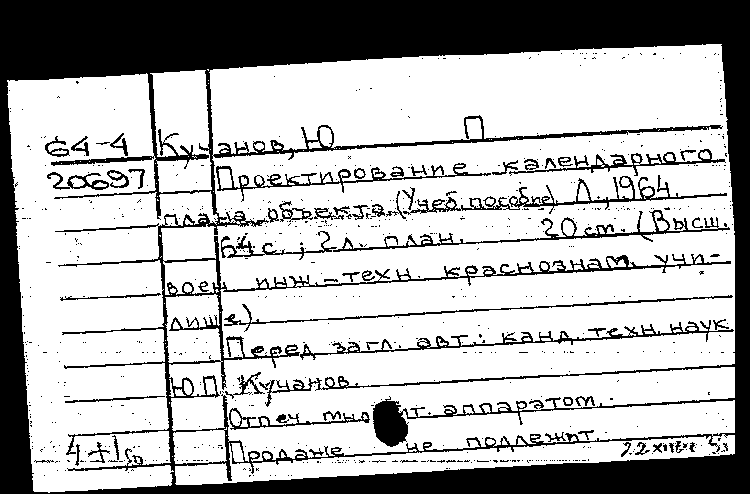 64-4 Кучанов, Ю П
20697 Проектирование календарного
плана объекта (Учеб. пособие) Л., 1964.
64 с.; 2 л. план. 20 см. (Высш.
воен инж.-техн. краснознам. учи-
лище).
Перед загл. авт.: канд. техн. наук
Ю.П. Кучанов.
Отпеч. аппаратом.
4+1 Продаже не подлежит.